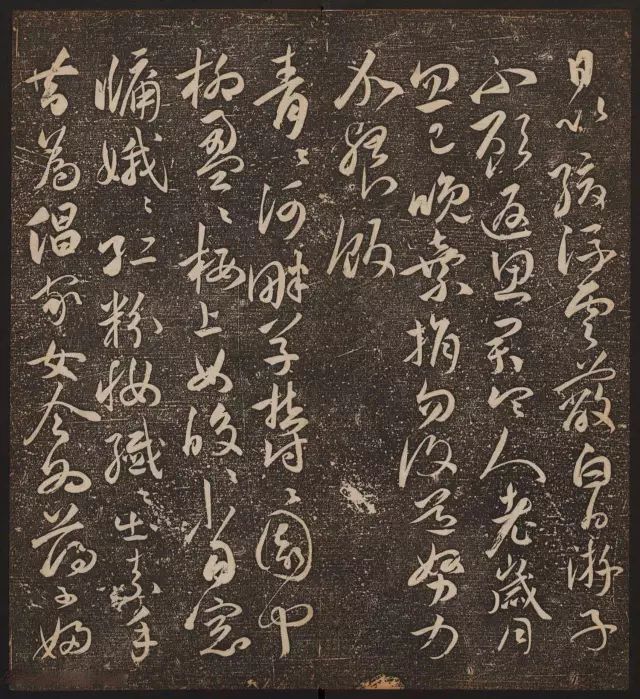 日以緩浮雲蔽白日遊子
不顧返思君令人老歲月
忽已晚棄捐勿復道努力
加餐飯
青〻河畔草鬱〻園中
柳盈〻樓上女皎〻當窓
牖娥〻紅粉妝纖〻出素手
昔為倡家女今為蕩子婦